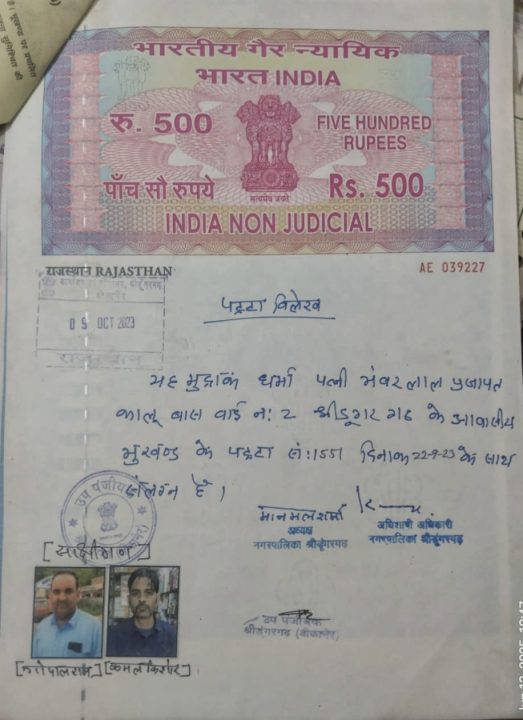 भारतीय गैर न्यायिक
भारत INDIA
रु. 500
FIVE HUNDRED
RUPEES
पाँच सौ रुपये
सत्यमेव जयते
Rs. 500
INDIA NON JUDICIAL
राजस्थान RAJASTHAN
AE 039227
05 OCT 2023
पट्टा विलेख
यह मुद्रांक धर्मा पत्नी भंवरलाल प्रजापत
कालू बास वार्ड नः 2 श्रीडूंगरगढ के आवासीय
भुखण्ड के पट्टा सं:1551 दिनांक 22-9-23 के साथ
संलग्न है।
उप पंजीयक
मानमल शर्मा
अध्यक्ष
नगरपालिका श्रीडूंगरगढ़
अधिशाषी अधिकारी
नगरपालिका श्रीडूंगरगढ़
[साक्षीगान]
उप पंजीयक
श्रीडूंगरगढ़ (बीकानेर)
[कमल किशोर]